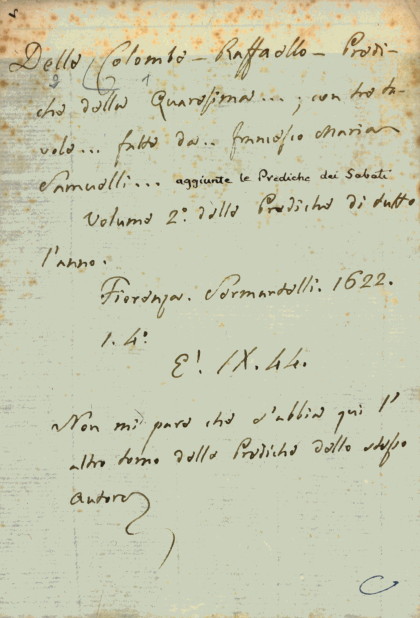 Delle Colombe - Raffaello - Predi-
2 1
che della Quaresima... ; con tre ta-
vole... fatte da.. Francesco Maria
Samuelli... aggiunte le Prediche dei Sabati
Volume 2º. delle Prediche di tutto
l'anno.
Fiorenza. Sermartelli. 1622.
1. 4º
E! IX. 44.
Non mi pare che s'abbia qui l'
altro tomo delle Prediche dello stesso
autore